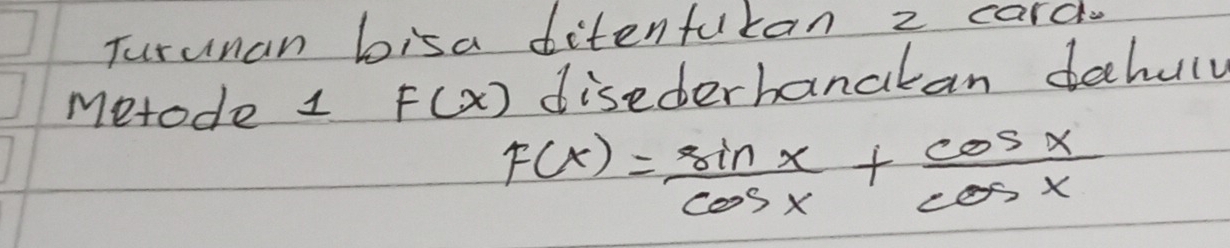 Turunan bisa ditentukan 2 cara.
Metode 1 F(x) disederhanakan dahulu
F(x) = sin x / cos x + cos x / cos x